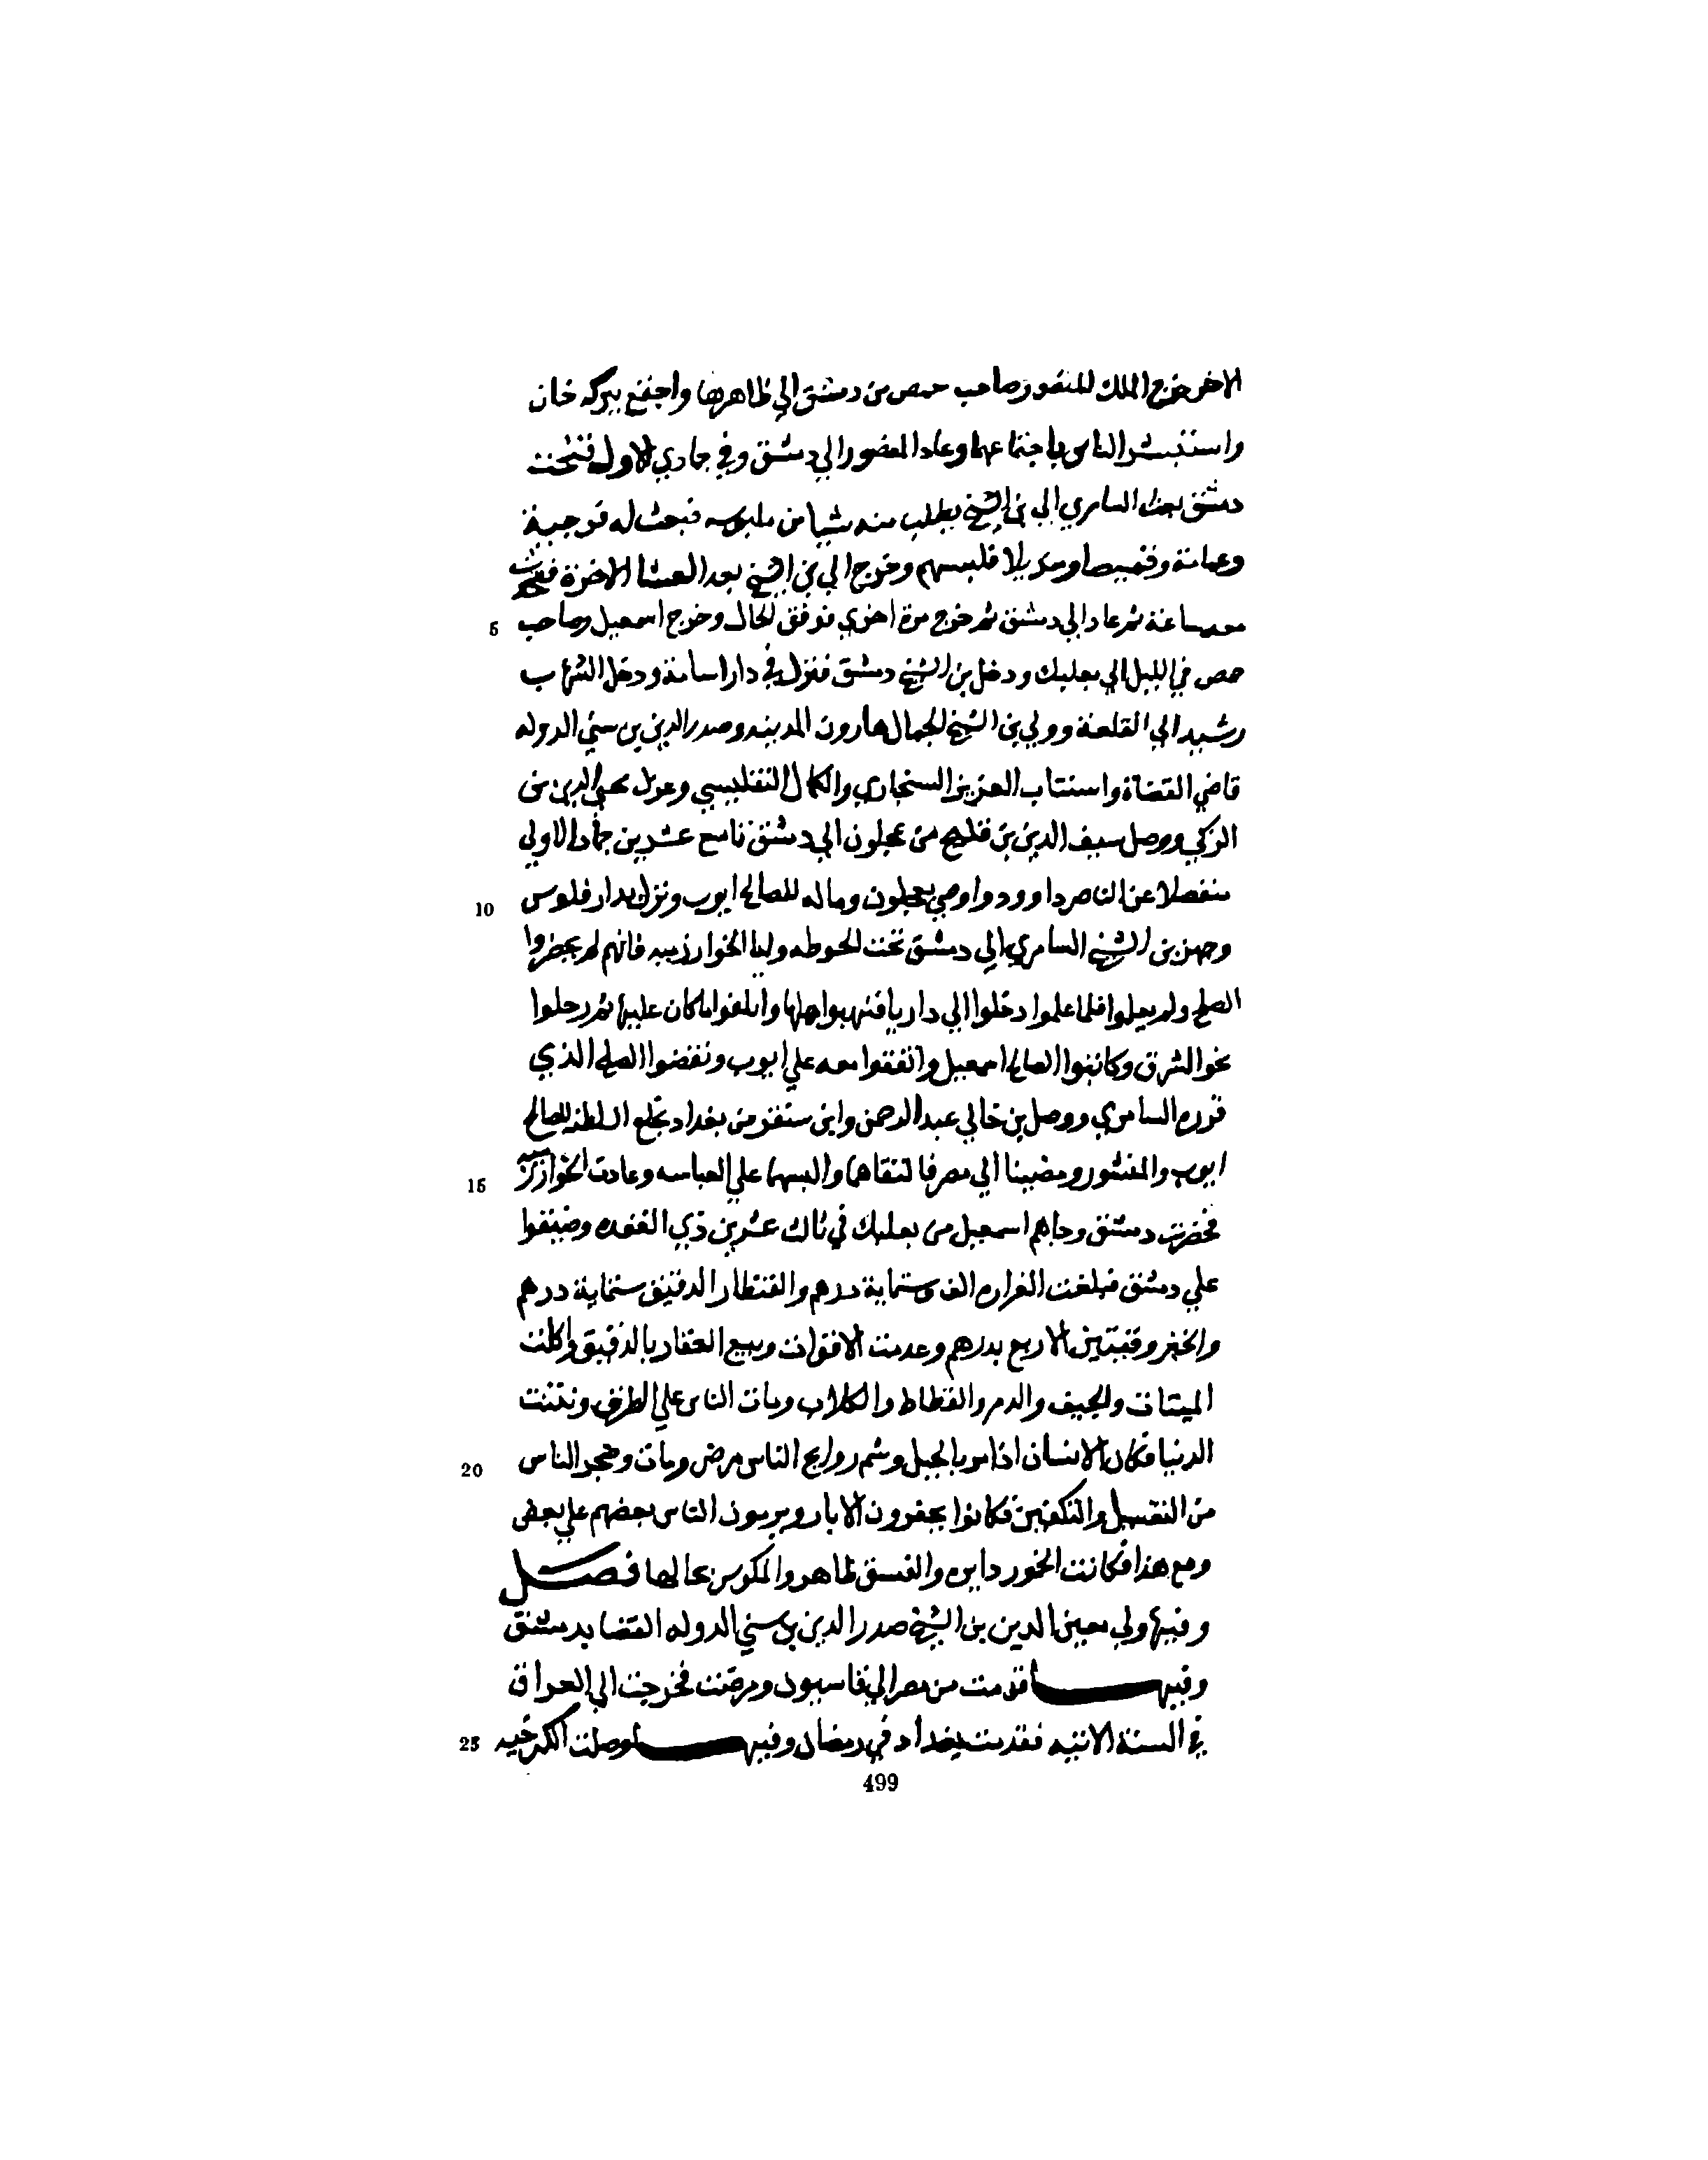 الاخر خرج الملك المنصور صاحب حمص من دمشق الي ظاهرها واجتمع ببركه خان
واستبشر الناس باجتماعهما وعاد المنصور الي دمشق وفي جمادي الاول فتحت
دمشق بعث السامري الي بن الشيخ يطلب منه شيا من ملبوسه فبعث له فرجية
وعمامة وقميصا ومنديلا فلبسهم وخرج الي بن الشيخ بعد العشا الاخرة فتحدث
معه ساعة ثم عاد الي دمشق ثم خرج مرة اخري فوفق الحال وخرج اسمعيل وصاحب
5
حمص في الليل الي بعلبك ودخل بن الشيخ دمشق فنزل في دار اسامة ودخل الشهاب
رشيد الي القلعة وولي بن الشيخ الجمال هارون المدينه وصدر الدين بن سني الدوله
قاضي القضاة واستناب العزيز السنجاري والكمال التفليسي وعزل محي الدين بن
الزكي ووصل سيف الدين بن قليج من عجلون الي دمشق تاسع عشرين جماد الاولي
منفصلا عن الناصر داوود واوصي بعجلون وماله للصالح ايوب ونزل بدار فلوس
10
وجهز بن الشيخ السامري الي دمشق تحت الحوطه واما الخوارزميه فانهم لم يحضروا
الصلح ولم يعلموا فلما علموا دخلوا الي داريا فنهبوا اهلها واتلفوا ما كان عليها ثم رحلوا
نحو الشرق وكاتبوا الصالح اسمعيل واتفقوا معه علي ايوب ونقضوا الصلح الذي
قرره السامري ووصل بن خالي عبد الرحمن وابن سنقر من بغداد بخلع السلطنه للصالح
ايوب والمنشور ومضينا الي مصر فالتقاهما والبسهما علي العباسه وعادت الخوارزميه
15
فحضرت دمشق وجاهم اسمعيل من بعلبك في ثالث عشرين ذي القعده وضيقوا
علي دمشق فبلغت الغراره الف وستماية درهم والقنطار الدقيق ستماية درهم
والخبز وقيتين الا ربع بدرهم وعدمت الاقوات وبيع العقار بالدقيق واكلت
الميتات والجيف والدم والقطاط والكلاب ومات الناس علي الطرق ونتنت
الدنيا فكان الانسان اذا مر بالجبل وشم روايح الناس مرض ومات وضجر الناس
20
من التغسيل والتكفين فكانوا يحفرون الابار ويرمون الناس بعضهم علي بعض
ومع هذا فكانت الخمور دايره والفسق ظاهر والمكوس بحالها فصل
وفيها ولي معين الدين بن الشيخ صدر الدين بن سني الدوله القضا بدمشق
وفيها قدمت من مصر الي قاسيون ومرضت فخرجت الي العراق
في السنة الاتيه فقدمت بغداد في رمضان وفيها وصلت الكرخيه
25
499